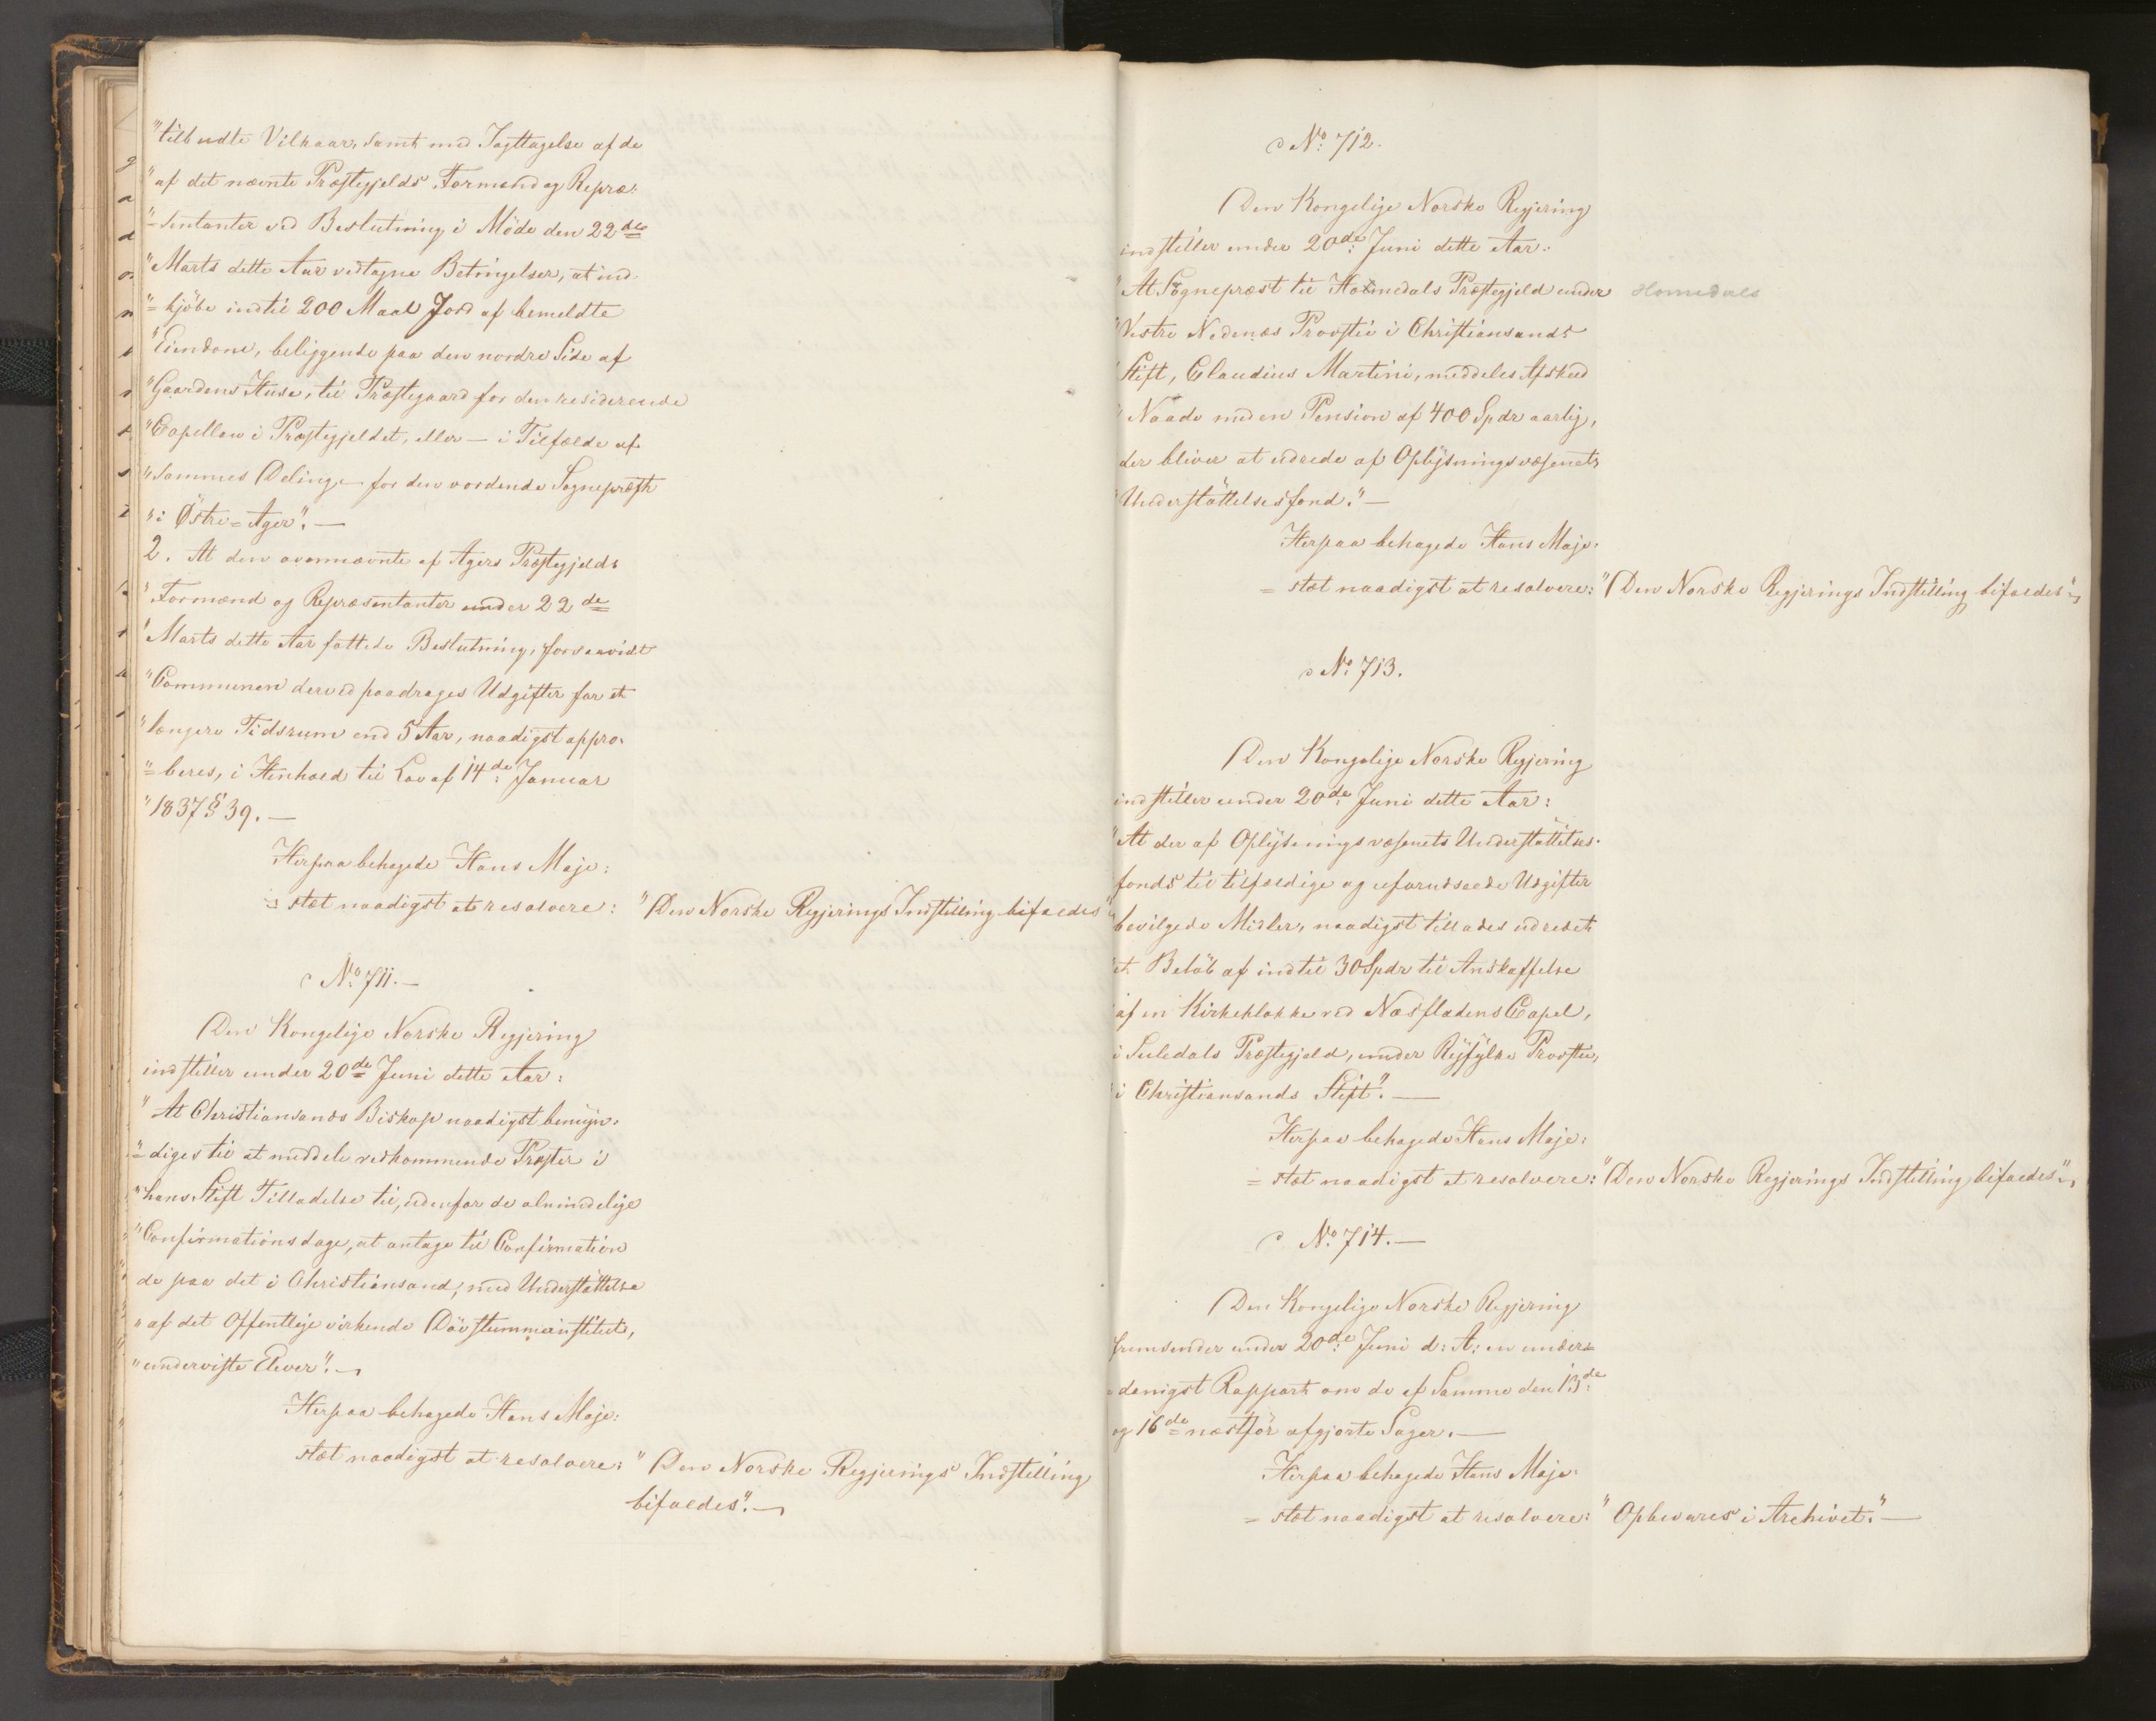 "tilbudte Vilkaar, samt med Iagttagelse af de
"af det nævnte Præstegjelds Formænd og Repræ:
"=sentanter ved Beslutning i Møde den 22de
"Marts dette Aar vedtagne Betingelser, at ind-
"=kjøbe indtil 200 Maal Jord af bemeldte
"Eiendom, beliggende paa den nordre Side af
"Gaardens Huse, til Præstegaard for den residerende
"Capellan i Præstegjeldet, eller — i Tilfælde af
"Sammes Deling — for den vordende Sognepræst
"i Østre=Ager". —
2. At den ovennævnte af Agers Præstegjelds
"Formænd og Repræsentanter under 22de
"Marts dette Aar fattede Beslutning, forsaavidt
"Communen derved paadrages Udgifter for et
"længere Tidsrum end 5 Aar, naadigst appro-
"=beres, i Henhold til Lov af 14de Januar
"1837 § 39. —
Herpaa behagede Hans Maje:
=stæt naadigst at resolvere: "Den Norske Regjerings Indstilling bifaldes"
No. 711. —
Den Kongelige Norske Regjering
indstiller under 20de Juni dette Aar:
"At Christiansands Biskop naadigst bemyn-
"=diges til at meddele vedkommende Præster i
"hans Stift Tilladelse til, udenfor de almindelige
"Confirmationsdage, at antage til Confirmation
de paa det i Christiansand, med Understøttelse
"af det Offentlige virkende Døvstummeinstitut,
"underviste Elever". —
Herpaa behagede Hans Maje:
stæt naadigst at resolvere: "Den Norske Regjerings Indstilling
bifaldes". —
No. 712.
Den Kongelige Norske Regjering
indstiller under 20de Juni dette Aar:
"At Sognepræst til Homedals Præstegjeld under Homedals
"Vestre Nedenæs Provstie i Christiansands
"Stift, Claudius Martini, meddeles Afskeed
"Naade med en Pension af 400 Spdr aarlig,
der bliver at udrede af Oplysningsvæsenets
"Understøttelsesfond". —
Herpaa behagede Hans Maje:
=stæt naadigst at resolvere: "Den Norske Regjerings Indstilling bifaldes". —
No. 713.
Den Kongelige Norske Regjering
indstiller under 20de Juni dette Aar:
"At der af Oplysningsvæsenets Understøttelses-
fonds til tilfældige og uforudseede Udgifter
bevilgede Midler, naadigst tillades udredet
et Beløb af indtil 30 Spdr til Anskaffelse
af en Kirkeklokke ved Næsfladens Capel,
i Suledals Præstegjeld, under Ryfylke Provstie,
i Christiansands Stift". —
Herpaa behagede Hans Maje:
=stæt naadigst at resolvere: "Den Norske Regjerings Indstilling bifaldes". —
No. 714. —
Den Kongelige Norske Regjering
fremsender under 20de Juni d: A: en under=
=danigst Rapport om de af Samme den 13de
og 16de næstfør afgjorte Sager. —
Herpaa behagede Hans Maje:
=stæt naadigst at resolvere: "Opbevares i Archivet". —